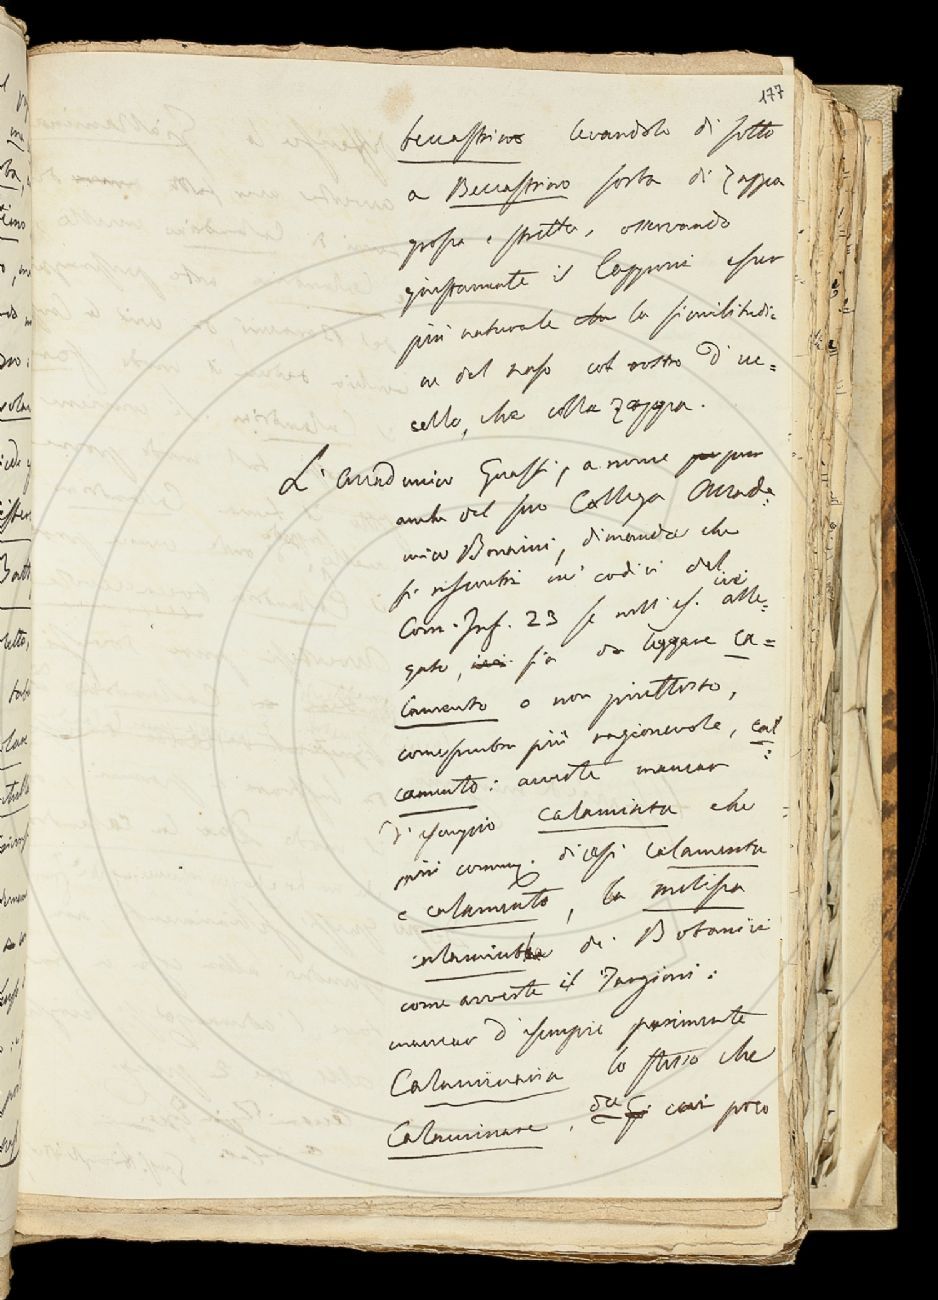 177
beccastrino levandolo di sotto
a Beccastrino sorta di Zappa
grossa e stretta, osservando
giustamente il Capponi esser
più naturale la similitudi=
ne del naso col rostro d'uc=
cello, che colla zappa.
L'Accademico Grassi, a nome pur
anche del suo Collega Accade=
mico Bonaini, dimanda che
si riscontri ne' codici del
Com. Inf. 23 se nell'es. ivi alle=
gato, sia da leggere Ca=
lamento o non piuttosto,
come sembra più ragionevole, cal
camento: avverte mancar
d'esempio calaminta che
più comun. dicesi calamento
e calamento, la melissa
calamintha de' Botanici
come avverte il Targioni:
mancar d'esempi parimente
Calaminaria lo stesso che
Calaminare. di cui poco